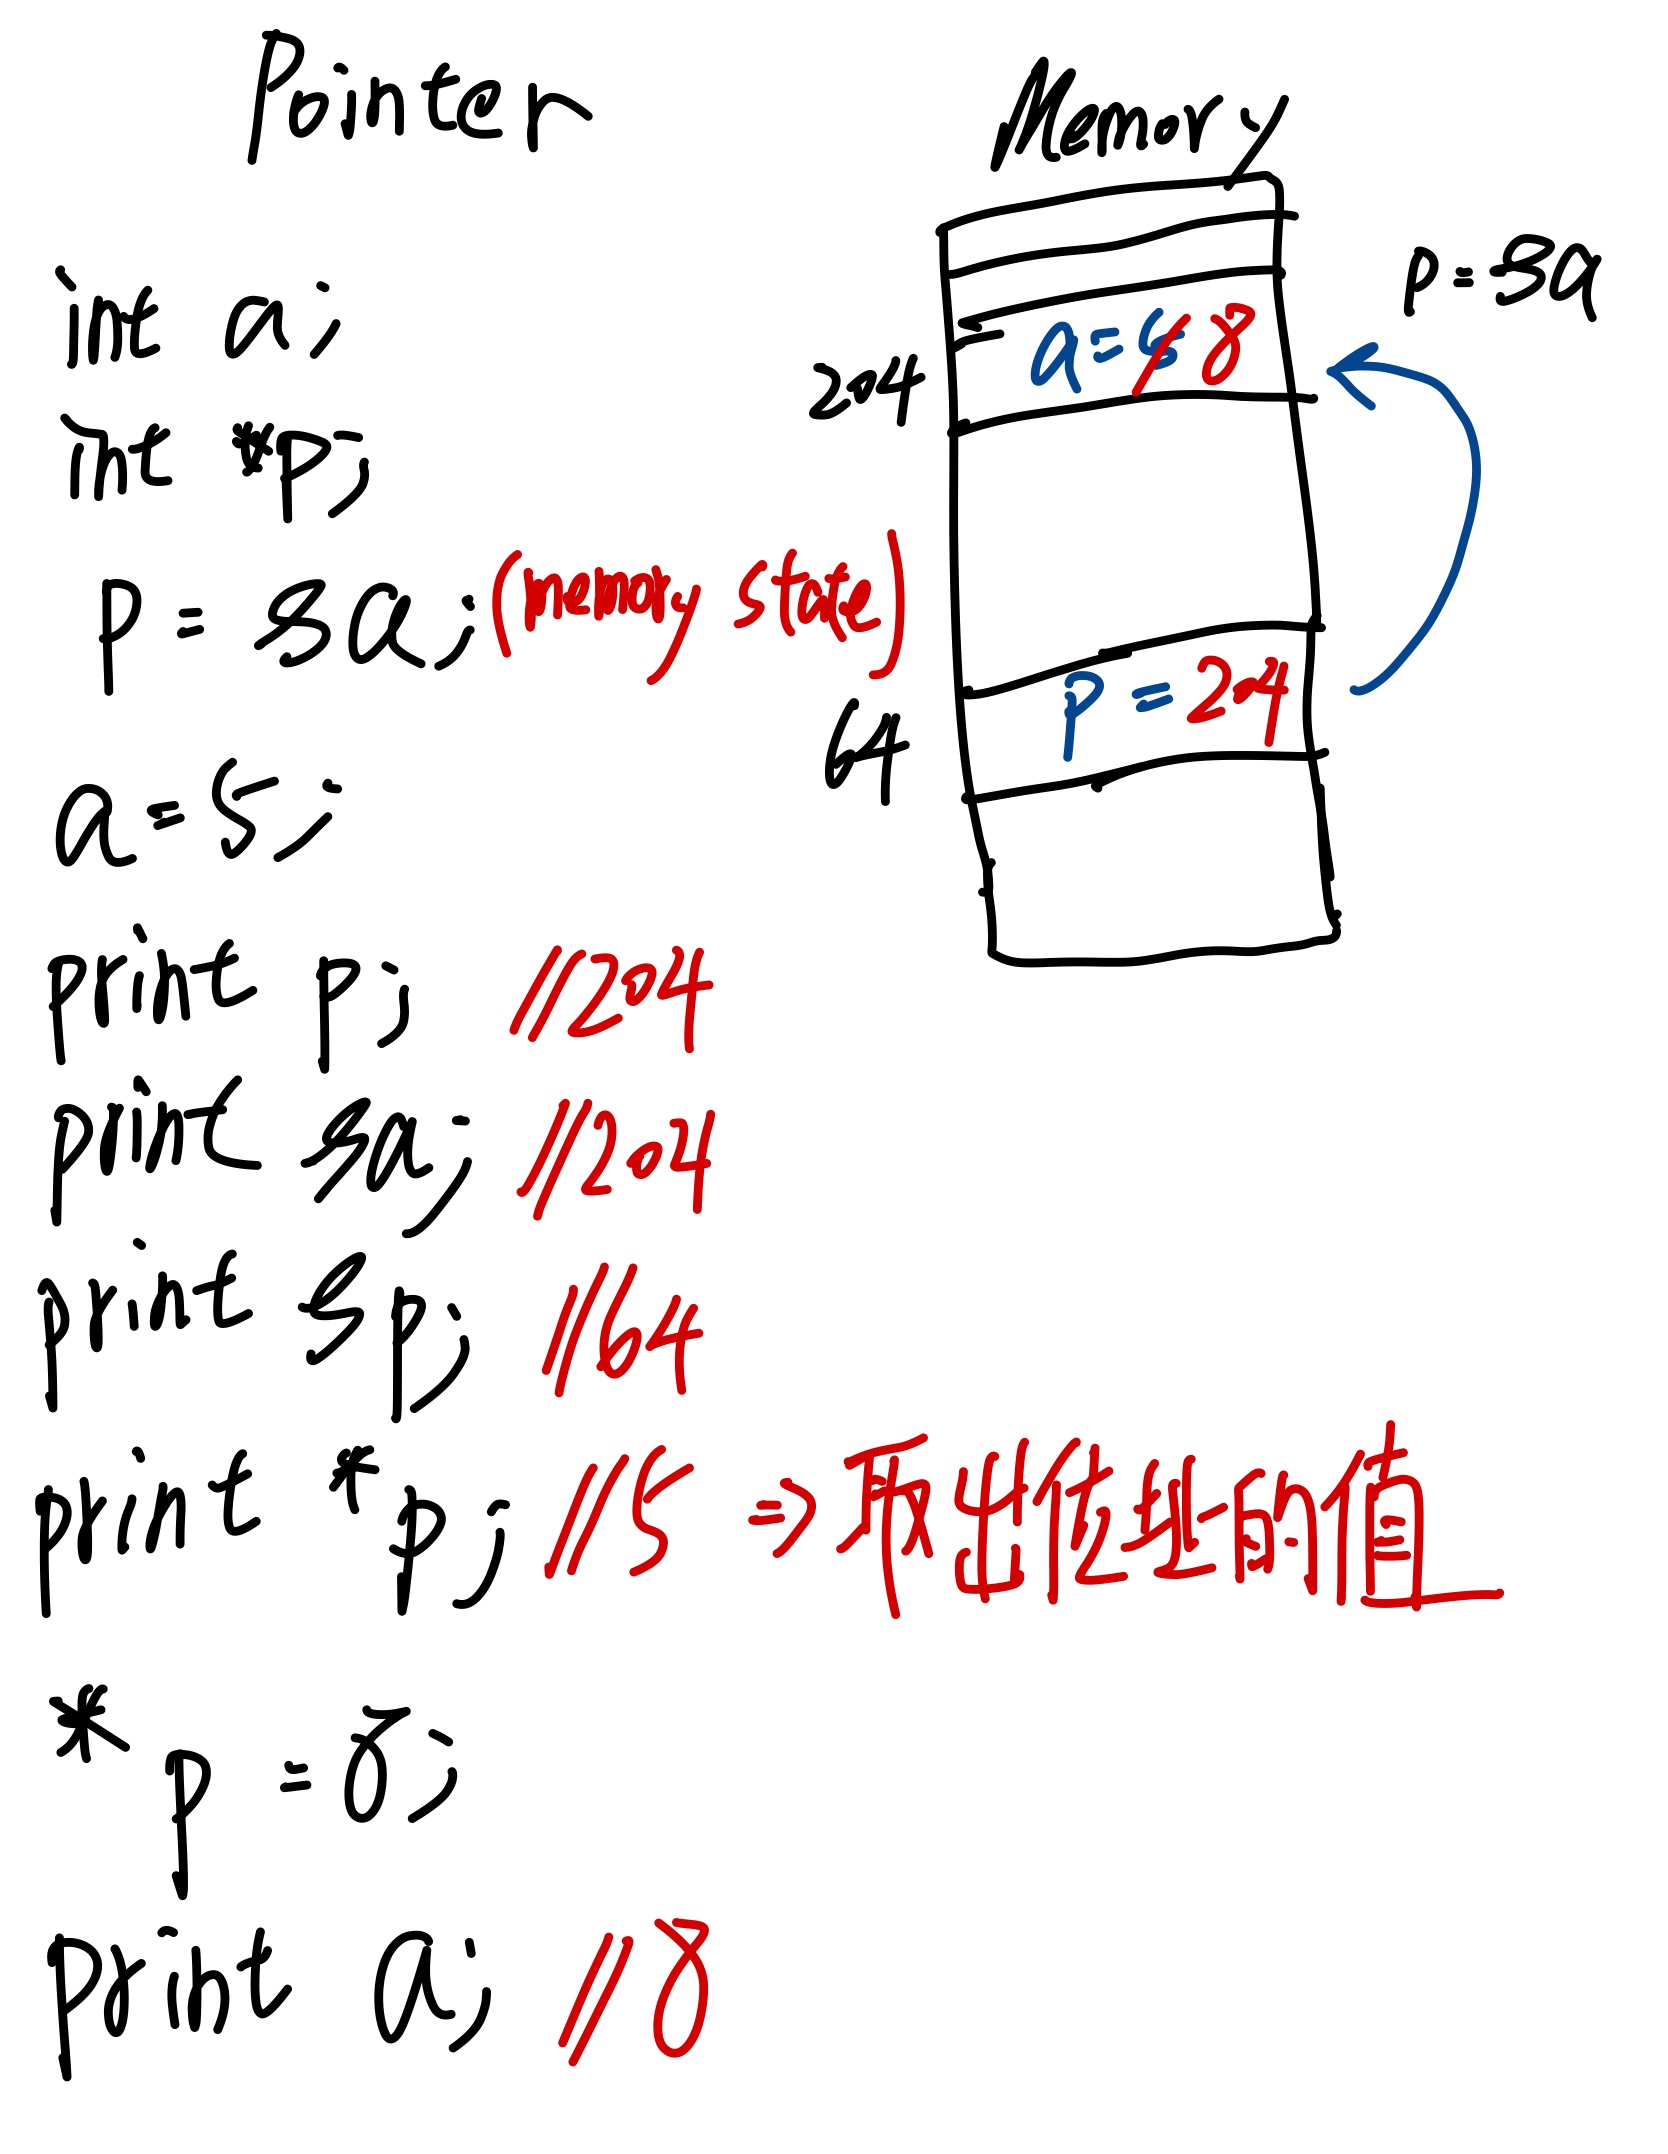 Pointer
Memory
int a;
int *p;
p = &a; (memory state)
a = 5;
print p; //204
print &a; //204
print &p; //64
print *p; //5 => 取出位址的值
*p = 8;
print a; //8
p = &a
204
a = 5 8
64
p = 204